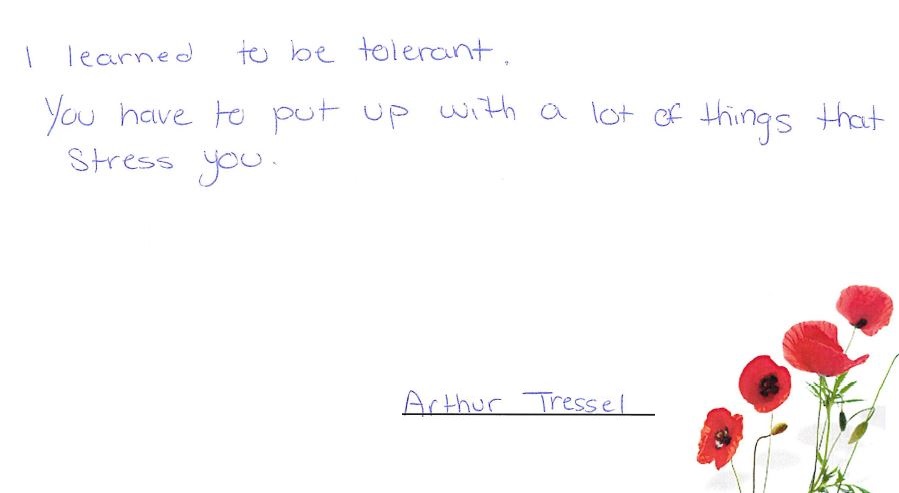 I learned to be tolerant.
You have to put up with a lot of things that
stress you.
Arthur Tressel